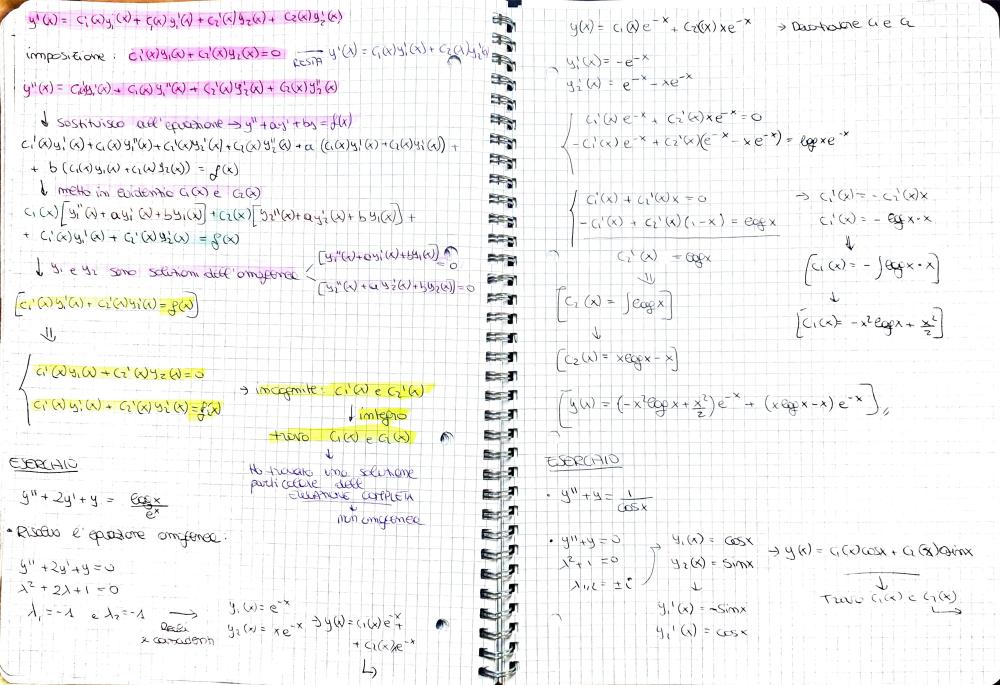 y'(x) = c₁'(x)y₁(x) + c₁(x)y₁'(x) + c₂'(x)y₂(x) + c₂(x)y₂'(x)
imposizione: c₁'(x)y₁(x) + c₂'(x)y₂(x) = 0 → RESTA y'(x) = c₁(x)y₁'(x) + c₂(x)y₂'(x)
y''(x) = c₁'y₁'(x) + c₁(x)y₁''(x) + c₂'(x)y₂'(x) + c₂(x)y₂''(x)
↓ sostituisco all'equazione → y'' + ay' + by = f(x)
c₁'(x)y₁'(x) + c₁(x)y₁''(x) + c₂'(x)y₂'(x) + c₂(x)y₂''(x) + a (c₁(x)y₁'(x) + c₂(x)y₂'(x)) +
+ b (c₁(x)y₁(x) + c₂(x)y₂(x)) = f(x)
↓ metto in evidenza c₁(x) e c₂(x)
c₁(x)[y₁''(x) + ay₁'(x) + by₁(x)] + c₂(x)[y₂''(x) + ay₂'(x) + by₂(x)] +
+ c₁'(x)y₁'(x) + c₂'(x)y₂'(x) = f(x)
↓ y₁ e y₂ sono soluzioni dell'omogenea < [y₁''(x) + ay₁'(x) + by₁(x)] = 0
[y₂''(x) + a y₂'(x) + by₂(x)] = 0
[c₁'(x)y₁'(x) + c₂'(x)y₂'(x) = f(x)]
⇓
{ c₁'(x)y₁(x) + c₂'(x)y₂(x) = 0
c₁'(x)y₁'(x) + c₂'(x)y₂'(x) = f(x)
→ incognite: c₁'(x) e c₂'(x)
↓ integro
trovo c₁(x) e c₂(x)
↓
Ho trovato una soluzione
particolare dell'
EQUAZIONE COMPLETA
↓
non omogenea
ESERCIZIO
y'' + 2y' + y = logx / eˣ
• Risolvo l'equazione omogenea:
y'' + 2y' + y = 0
λ² + 2λ + 1 = 0
λ₁ = -1 e λ₂ = -1 →
y₁(x) = e⁻ˣ
y₂(x) = xe⁻ˣ → y(x) = c₁(x)e⁻ˣ +
+ c₂(x)xe⁻ˣ
↳
y(x) = c₁(x)e⁻ˣ + c₂(x)xe⁻ˣ → Devo trovare c₁ e c₂
y₁'(x) = -e⁻ˣ
y₂'(x) = e⁻ˣ - xe⁻ˣ
{ c₁'(x)e⁻ˣ + c₂'(x)xe⁻ˣ = 0
-c₁'(x)e⁻ˣ + c₂'(x)(e⁻ˣ - xe⁻ˣ) = logxe⁻ˣ
{ c₁'(x) + c₂'(x)x = 0 → c₁'(x) = -c₂'(x)x
-c₁'(x) + c₂'(x)(1-x) = logx c₁'(x) = -logx·x
c₂'(x) = logx ⇓
⇓ [c₁(x) = -∫logx·x]
[c₂(x) = ∫logx] ↓
↓ [c₁(x) = -x²logx + x²/2]
[c₂(x) = xlogx - x]
[y(x) = (-x²logx + x²/2)e⁻ˣ + (xlogx - x)e⁻ˣ]
ESERCIZIO
• y'' + y = 1 / cosx
• y'' + y = 0
λ² + 1 = 0
λ₁,₂ = ±i
→ y₁(x) = cosx
y₂(x) = sinx
↓
y₁'(x) = -sinx
y₂'(x) = cosx
→ y(x) = c₁(x)cosx + c₂(x)sinx
↓
Trovo c₁(x) e c₂(x)